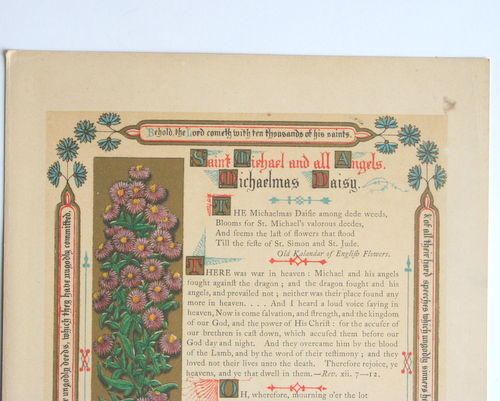 Behold, the Lord cometh with ten thousands of his saints.
Saint Michael and all Angels.
Michaelmas Daisy.
THE Michaelmas Daiſie among dede weeds,
Blooms for St. Michael's valorous deedes,
And ſeems the laſt of flowers that ſtood
Till the feſte of St. Simon and St. Jude.
Old Kalandar of Engliſh Flowers.
THERE was war in heaven: Michael and his angels
fought againſt the dragon; and the dragon fought and his
angels, and prevailed not; neither was their place found any
more in heaven. . . . And I heard a loud voice ſaying in
heaven, Now is come ſalvation, and ſtrength, and the kingdom
of our God, and the power of His Chriſt: for the accuſer of
our brethren is caſt down, which accuſed them before our
God day and night. And they overcame him by the blood
of the Lamb, and by the word of their teſtimony; and they
loved not their lives unto the death. Therefore rejoice, ye
heavens, and ye that dwell in them.—Rev. xii. 7—12.
OH, wherefore, mourning o'er the lot
ungodly deeds, which they have ungodly committed,
& of all their hard speeches which ungodly sinners